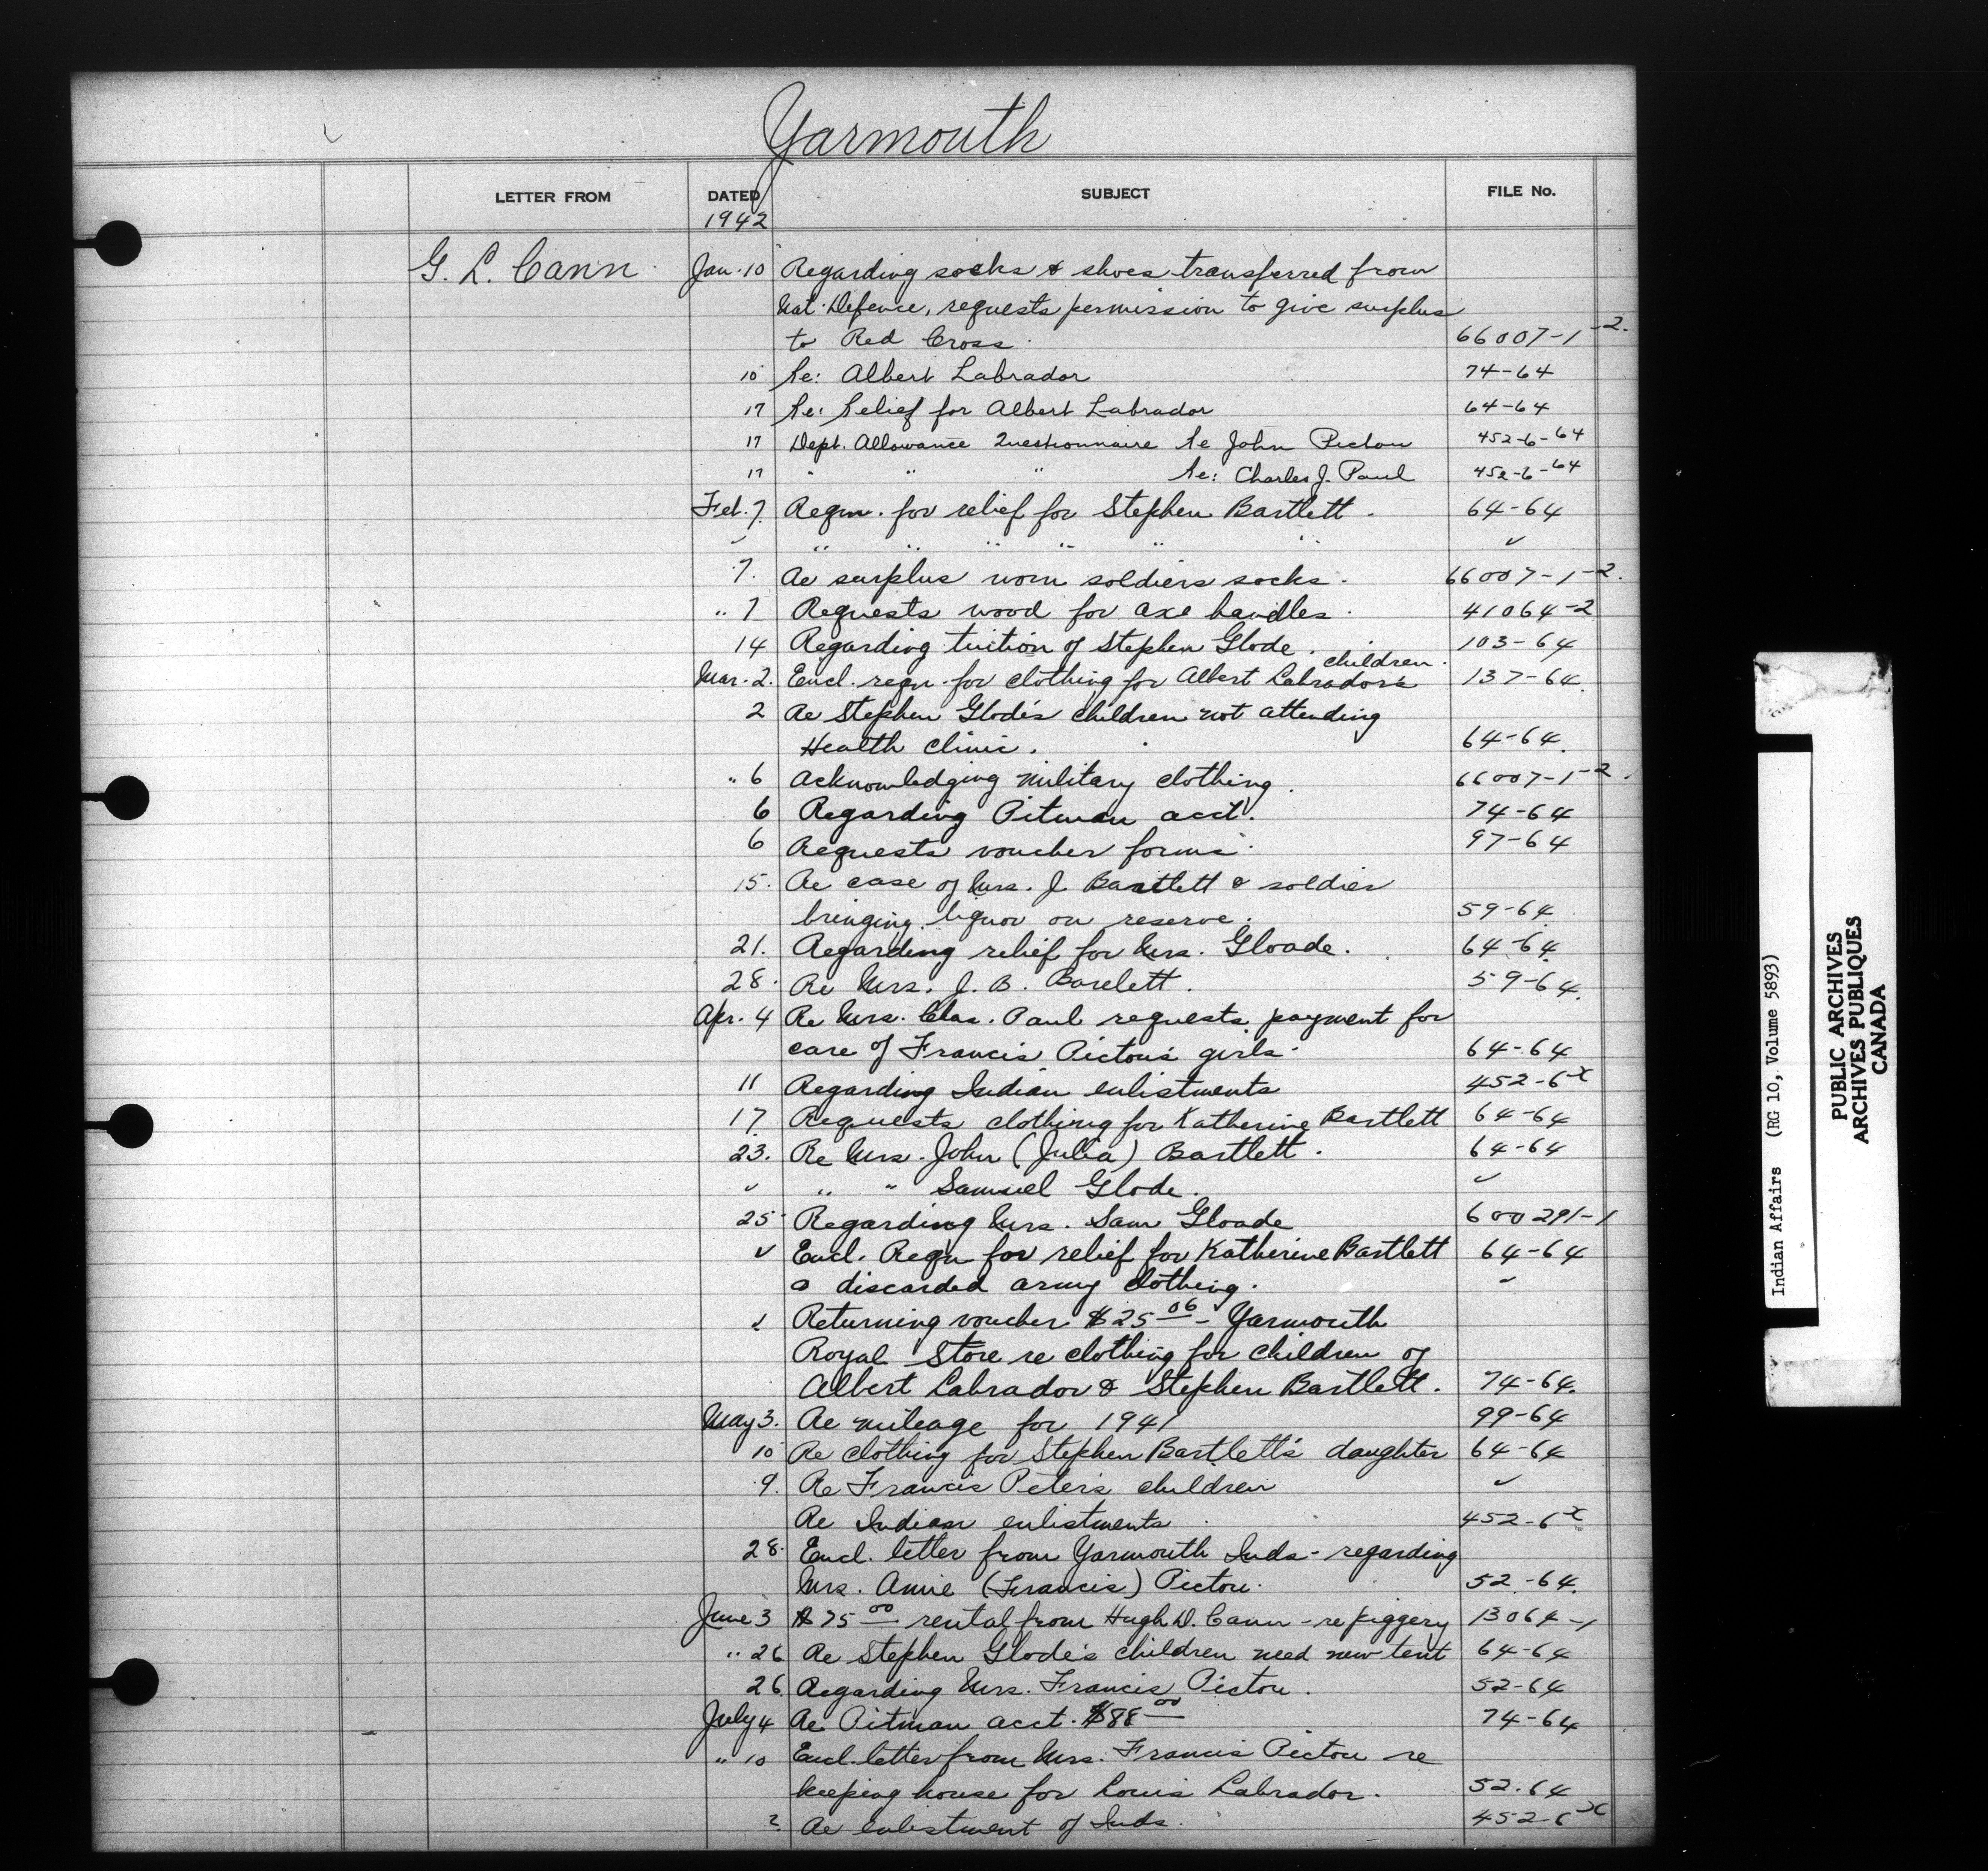 Yarmouth
LETTER FROM DATED SUBJECT FILE No.
1942
G. L. Cann Jan. 10 Regarding socks & shoes transferred from
Nat. Defence, requests permission to give surplus
to Red Cross. 66007-1-2.
10 Re: Albert Labrador 74-64
17 Re: Relief for Albert Labrador 64-64
17 Dept. Allowance Questionnaire Re John Pictou 452-6-64
17 " " " Re: Charles J. Paul 452-6-64
Feb. 7. Reqn. for relief for Stephen Bartlett. 64-64
✓ " " " " " " ✓
7. Re surplus worn soldiers socks. 66007-1-2.
" 7 Requests wood for axe handles. 41064-2
14 Regarding tuition of Stephen Glode. 103-64
Mar. 2. Encl. reqn. for clothing for Albert Labrador's children. 137-64.
2 Re Stephen Glode's children not attending
Health Clinic. 64-64.
" 6 Acknowledging military clothing. 66007-1-2.
6 Regarding Pitman acct. 74-64
6 Requests voucher forms. 97-64
15. Re case of Mrs. J. Bartlett & soldier
bringing liquor on reserve. 59-64
21. Regarding relief for Mrs. Gloade. 64-64.
28. Re Mrs. J. B. Barelett. 59-64.
Apr. 4 Re Mrs. Chas. Paul requests payment for
care of Francis Pictou's girls. 64-64
11 Regarding Indian enlistments 452-6 x
17. Requests clothing for Katherine Bartlett 64-64
23. Re Mrs. John (Julia) Bartlett. 64-64
✓ " " Samuel Glode. ✓
25 Regarding Mrs. Sam Gloade 600291-1
✓ Encl. Reqn for relief for Katherine Bartlett 64-64
& discarded army clothing. ✓
✓ Returning voucher $25 06 - Yarmouth
Royal Store re clothing for children of
Albert Labrador & Stephen Bartlett. 74-64.
May 3. Re mileage for 1941 99-64
10 Re clothing for Stephen Bartlett's daughter 64-64
9. Re Francis Peter's children ✓
Re Indian enlistments 452-6 x
28. Encl. letter from Yarmouth Inds - regarding
Mrs. Annie (Francis) Pictou. 52-64.
June 3 $75 00 rental from Hugh D. Cann - re piggery 13064-1
" 26 Re Stephen Glode's children need new tent 64-64
26. Regarding Mrs. Francis Pictou. 52-64
July 4 Re Pitman acct. $88 00 74-64
" 10 Encl. letter from Mrs. Francis Pictou re
keeping house for Louis Labrador. 52.64
? Re enlistment of Inds. 452-6 x
Indian Affairs (RG 10, Volume 5893)
PUBLIC ARCHIVES
ARCHIVES PUBLIQUES
CANADA